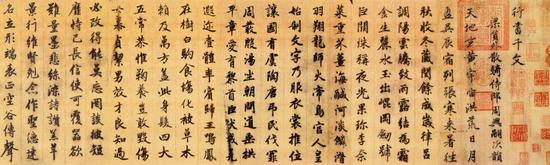 行書千文
梁員外散騎侍郎周興嗣次韻
天地玄黃宇宙洪荒日月
盈昃辰宿列張寒來暑往
秋收冬藏閏餘成歲律呂
調陽雲騰致雨露結為霜
金生麗水玉出崑岡劍號
巨闕珠稱夜光果珍李柰
菜重芥薑海鹹河淡鱗潛
羽翔龍師火帝鳥官人皇
始制文字乃服衣裳推位
讓國有虞陶唐弔民伐罪
周發殷湯坐朝問道垂拱
平章愛育黎首臣伏戎羌
遐邇壹體率賓歸王鳴鳳
在樹白駒食場化被草木
賴及萬方蓋此身髮四大
五常恭惟鞠養豈敢毀傷
女慕貞絜男效才良知過
必改得能莫忘罔談彼短
靡恃己長信使可覆器欲
難量墨悲絲染詩讚羔羊
景行維賢剋念作聖德建
名立形端表正空谷傳聲